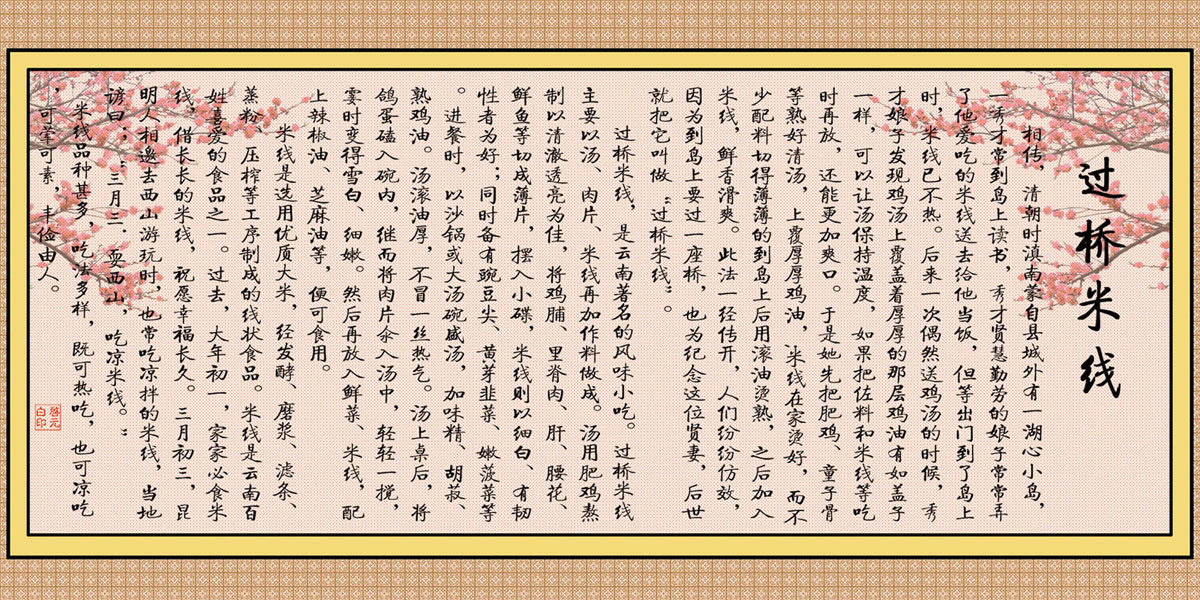 过桥米线
相传，清朝时滇南蒙自县城外有一湖心小岛，
一秀才常到岛上读书，秀才贤慧勤劳的娘子常常弄
了他爱吃的米线送去给他当饭，但等出门到了岛上
时，米线已不热。后来一次偶然送鸡汤的时候，秀
才娘子发现鸡汤上覆盖着厚厚的那层鸡油有如盖子
一样，可以让汤保持温度，如果把佐料和米线等吃
时再放，还能更加爽口。于是她先把肥鸡、童子骨
等熟好清汤，上覆厚厚鸡油，米线在家烫好，而不
少配料切得薄薄的到岛上后用滚油烫熟，之后加入
米线，鲜香滑爽。此法一经传开，人们纷纷仿效，
因为到岛上要过一座桥，也为纪念这位贤妻，后世
就把它叫做“过桥米线”。
过桥米线，是云南著名的风味小吃。过桥米线
主要以汤、肉片、米线再加作料做成。汤用肥鸡熬
制以清澈透亮为佳，将鸡脯、里脊肉、肝、腰花、
鲜鱼等切成薄片，摆入小碟，米线则以细白、有韧
性者为好；同时备有豌豆尖、黄芽韭菜、嫩菠菜等
。进餐时，以沙锅或大汤碗盛汤，加味精、胡菽、
熟鸡油。汤滚油厚，不冒一丝热气。汤上桌后，将
鸽蛋磕入碗内，继而将肉片汆入汤中，轻轻一搅，
霎时变得雪白、细嫩。然后再放入鲜菜、米线，配
上辣椒油、芝麻油等，便可食用。
米线是选用优质大米，经发酵、磨浆、滤条、
蒸粉、压榨等工序制成的线状食品。米线是云南百
姓喜爱的食品之一。过去，大年初一，家家必食米
线，借长长的米线，祝愿幸福长久。三月初三，昆
明人相邀去西山游玩时，也常吃凉拌的米线，当地
谚曰：“三月三、耍西山，吃凉米线。”
米线品种甚多，吃法多样，既可热吃，也可凉吃
，可荤可素，丰俭由人。
啓元
白印